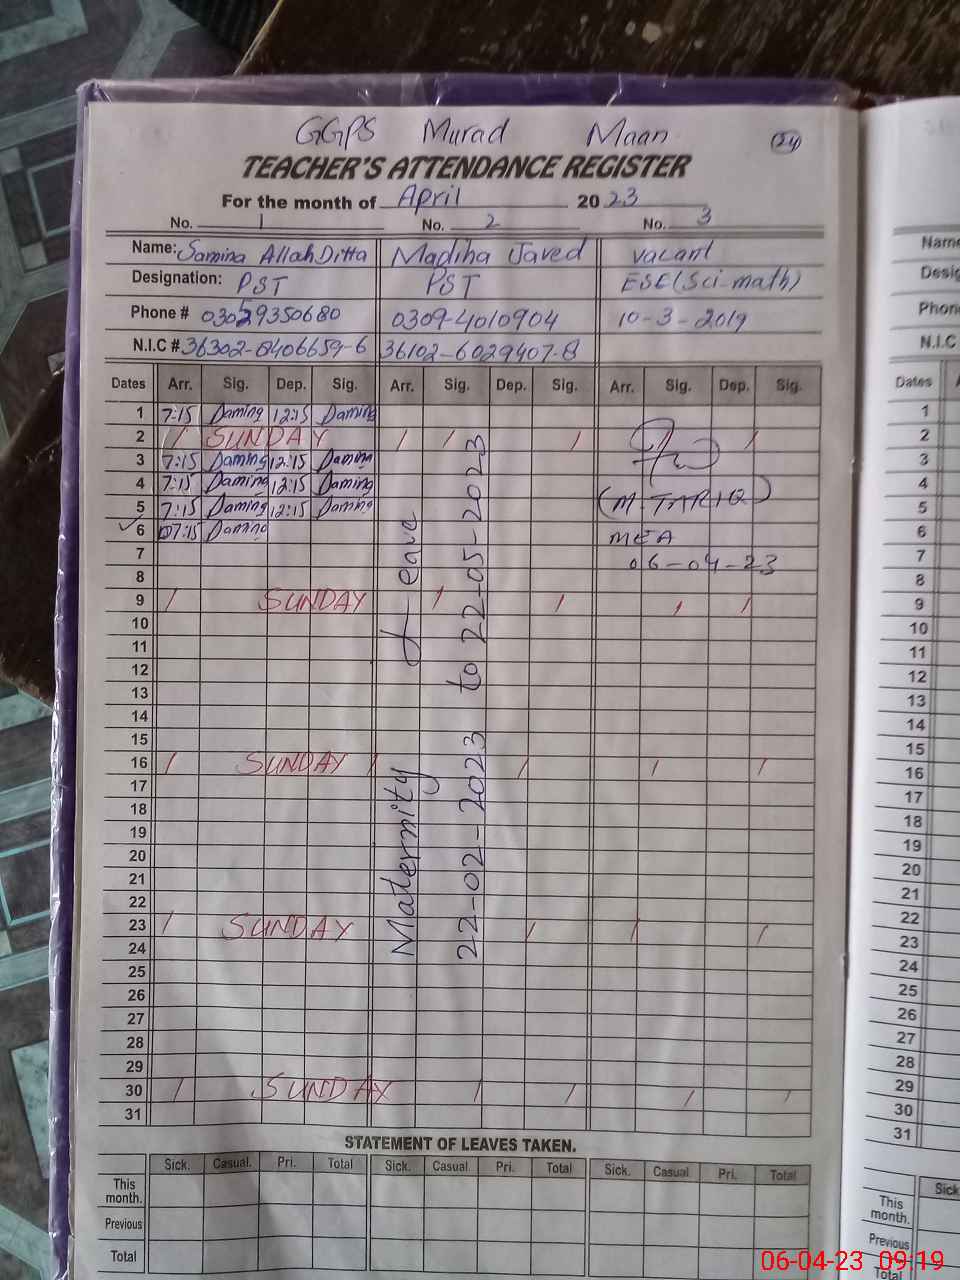 GGPS Murad Maan 24
TEACHER'S ATTENDANCE REGISTER
For the month of April 2023
No. 1 No. 2 No. 3
Name: Samina Allah Ditta Madiha Javed vacant
Designation: PST PST ESE (Sci-math)
Phone # 03059350680 0309-4010904 10-3-2019
N.I.C # 36302-8406659-6 36102-6029407-8
Dates Arr. Sig. Dep. Sig. Arr. Sig. Dep. Sig. Arr. Sig. Dep. Sig.
1 7:15 12:15
2 SUNDAY
3 7:15 12:15
4 7:15 12:15
5 7:15 12:15 (M. TARIQ)
6 7:15 MEA
7 06-04-23
8
9 SUNDAY
10
11
12
13
14
15
16 SUNDAY
17
18
19
20
21
22
23 SUNDAY
24
25
26
27
28
29
30 SUNDAY
31
Maternity Leave
22-02-2023 to 22-05-2023
STATEMENT OF LEAVES TAKEN.
Sick. Casual. Pri. Total Sick. Casual. Pri. Total Sick. Casual. Pri. Total
This month.
Previous
Total
Name
Desig
Phon
N.I.C
Dates
1
2
3
4
5
6
7
8
9
10
11
12
13
14
15
16
17
18
19
20
21
22
23
24
25
26
27
28
29
30
31
Sick
This month.
Previous
Total
06-04-23 09:19